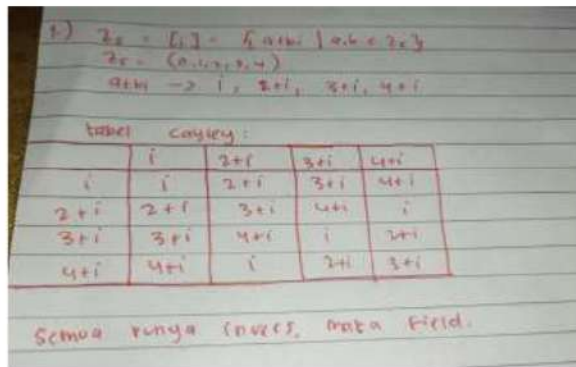 1.) Z₅ = [i] = { a+bi | a,b ∈ Z₅ }
Z₅ = (0,1,2,3,4)
a+bi -> i, 2+i, 3+i, 4+i
tabel cayley :
i 2+i 3+i 4+i
i i 2+i 3+i 4+i
2+i 2+i 3+i 4+i i
3+i 3+i 4+i i 2+i
4+i 4+i i 2+i 3+i
Semua punya invers, maka field.